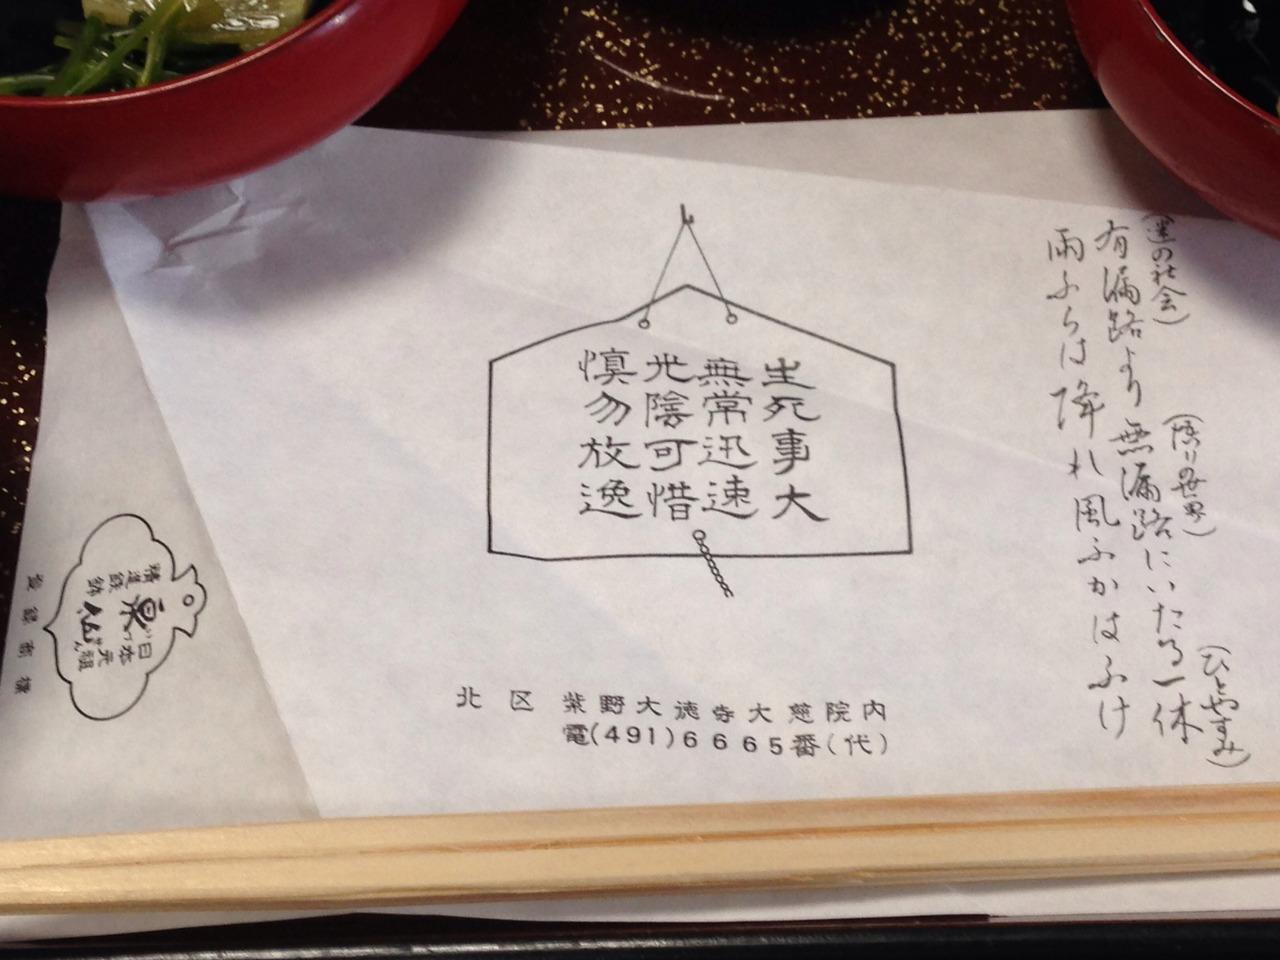 (迷の社会)
有漏路より
(悟りの世界)
無漏路にいたる
(ひとやすみ)
一休
雨ふらは降れ風ふかはふけ
生死事大
無常迅速
光陰可惜
慎勿放逸
北区 紫野大徳寺大慈院内
電(491)6665番(代)
日本元祖
泉仙
精進鉄鉢
登録商標